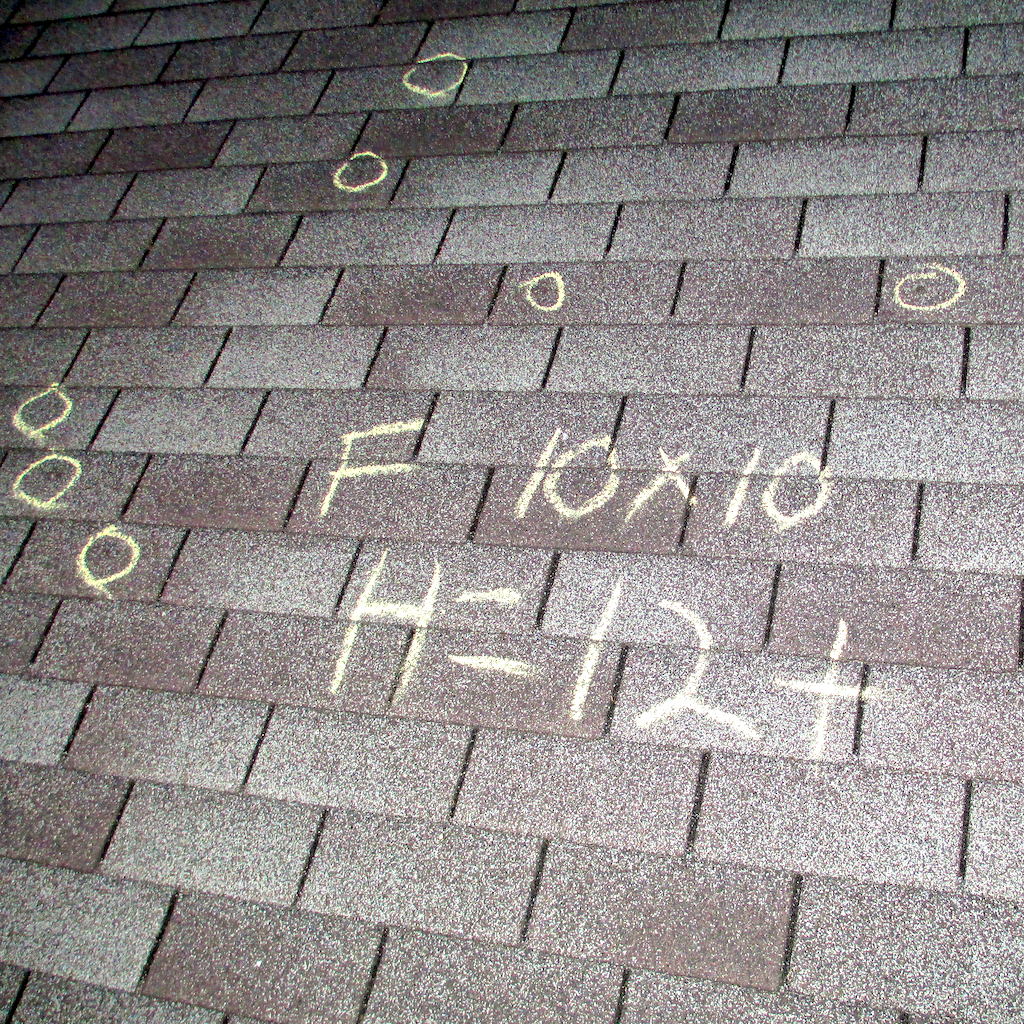 F 10x10
H=12+